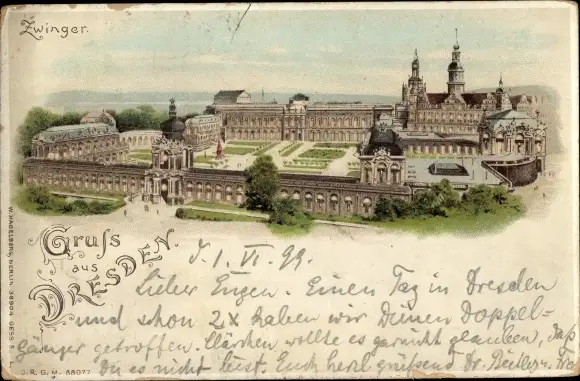 Zwinger.
Gruſs
aus
DRESDEN.
W. HAGELBERG, BERLIN. 38904 GES. S.
D. 1. VI. 99.
Lieber Eugen. Einen Tag in Dresden
und schon 2x haben wir Deinen Doppel-
gänger getroffen. Klärchen wollte es garnicht glauben, daß
Du es nicht bist. Euch herzl grüßend Dr.
D. R. G. M.- 88077